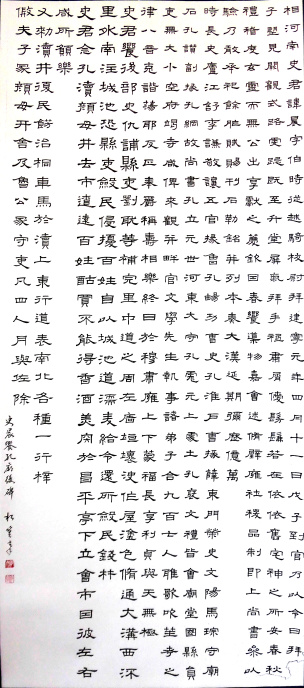 相河南史君諱晨字伯時從越騎校尉拜建寧元年四月十一日戊子到官乃以令日拜
子望見闕觀式路虔跽既至升堂屏氣拜手祗肅屑僾髣髴若在依依舊宅神之所安春秋
禮稽度玄靈而無公出享獻之薦欽因春饗導物嘉會述脩辟雍社稷品制即上尚書參以
驗乃敢承祀餘胙賦賜刊石勒銘并列本奏大漢延期彌歷億萬
時長史廬江舒李謙敬讓五官掾魯孔暢功曹史孔淮戶曹掾薛東門榮史文陽馬琮守廟
石孔讚副掾孔綱故尚書孔立元世河東太守孔彪元上處士孔褒文禮皆會廟堂國縣
吏無大小空府竭寺咸俾來觀并畔宮文學先生執事諸弟子合九百七人雅歌吹笙考之
律八音克諧蕩邪反正奉爵稱壽相樂終日於穆肅雍上下蒙福長享利貞與天無極
史君饗後部史仇誧縣吏劉耽等補完里中道之周左廧垣壞決作屋塗色脩通大溝西流
里外南注城池恐縣吏斂民侵擾百姓自以城池道濡麥給令還所斂民錢材
史君念孔瀆顏母井去市遼遠百姓酤買不能得香酒美肉於昌平亭下立會市因彼左右
咸所願樂
又敕瀆井復民飭治桐車馬於瀆上東行道表南北各種一行梓
假夫子冢顏母井舍及魯公冢守吏凡四人月與佐除
史晨饗孔廟後碑